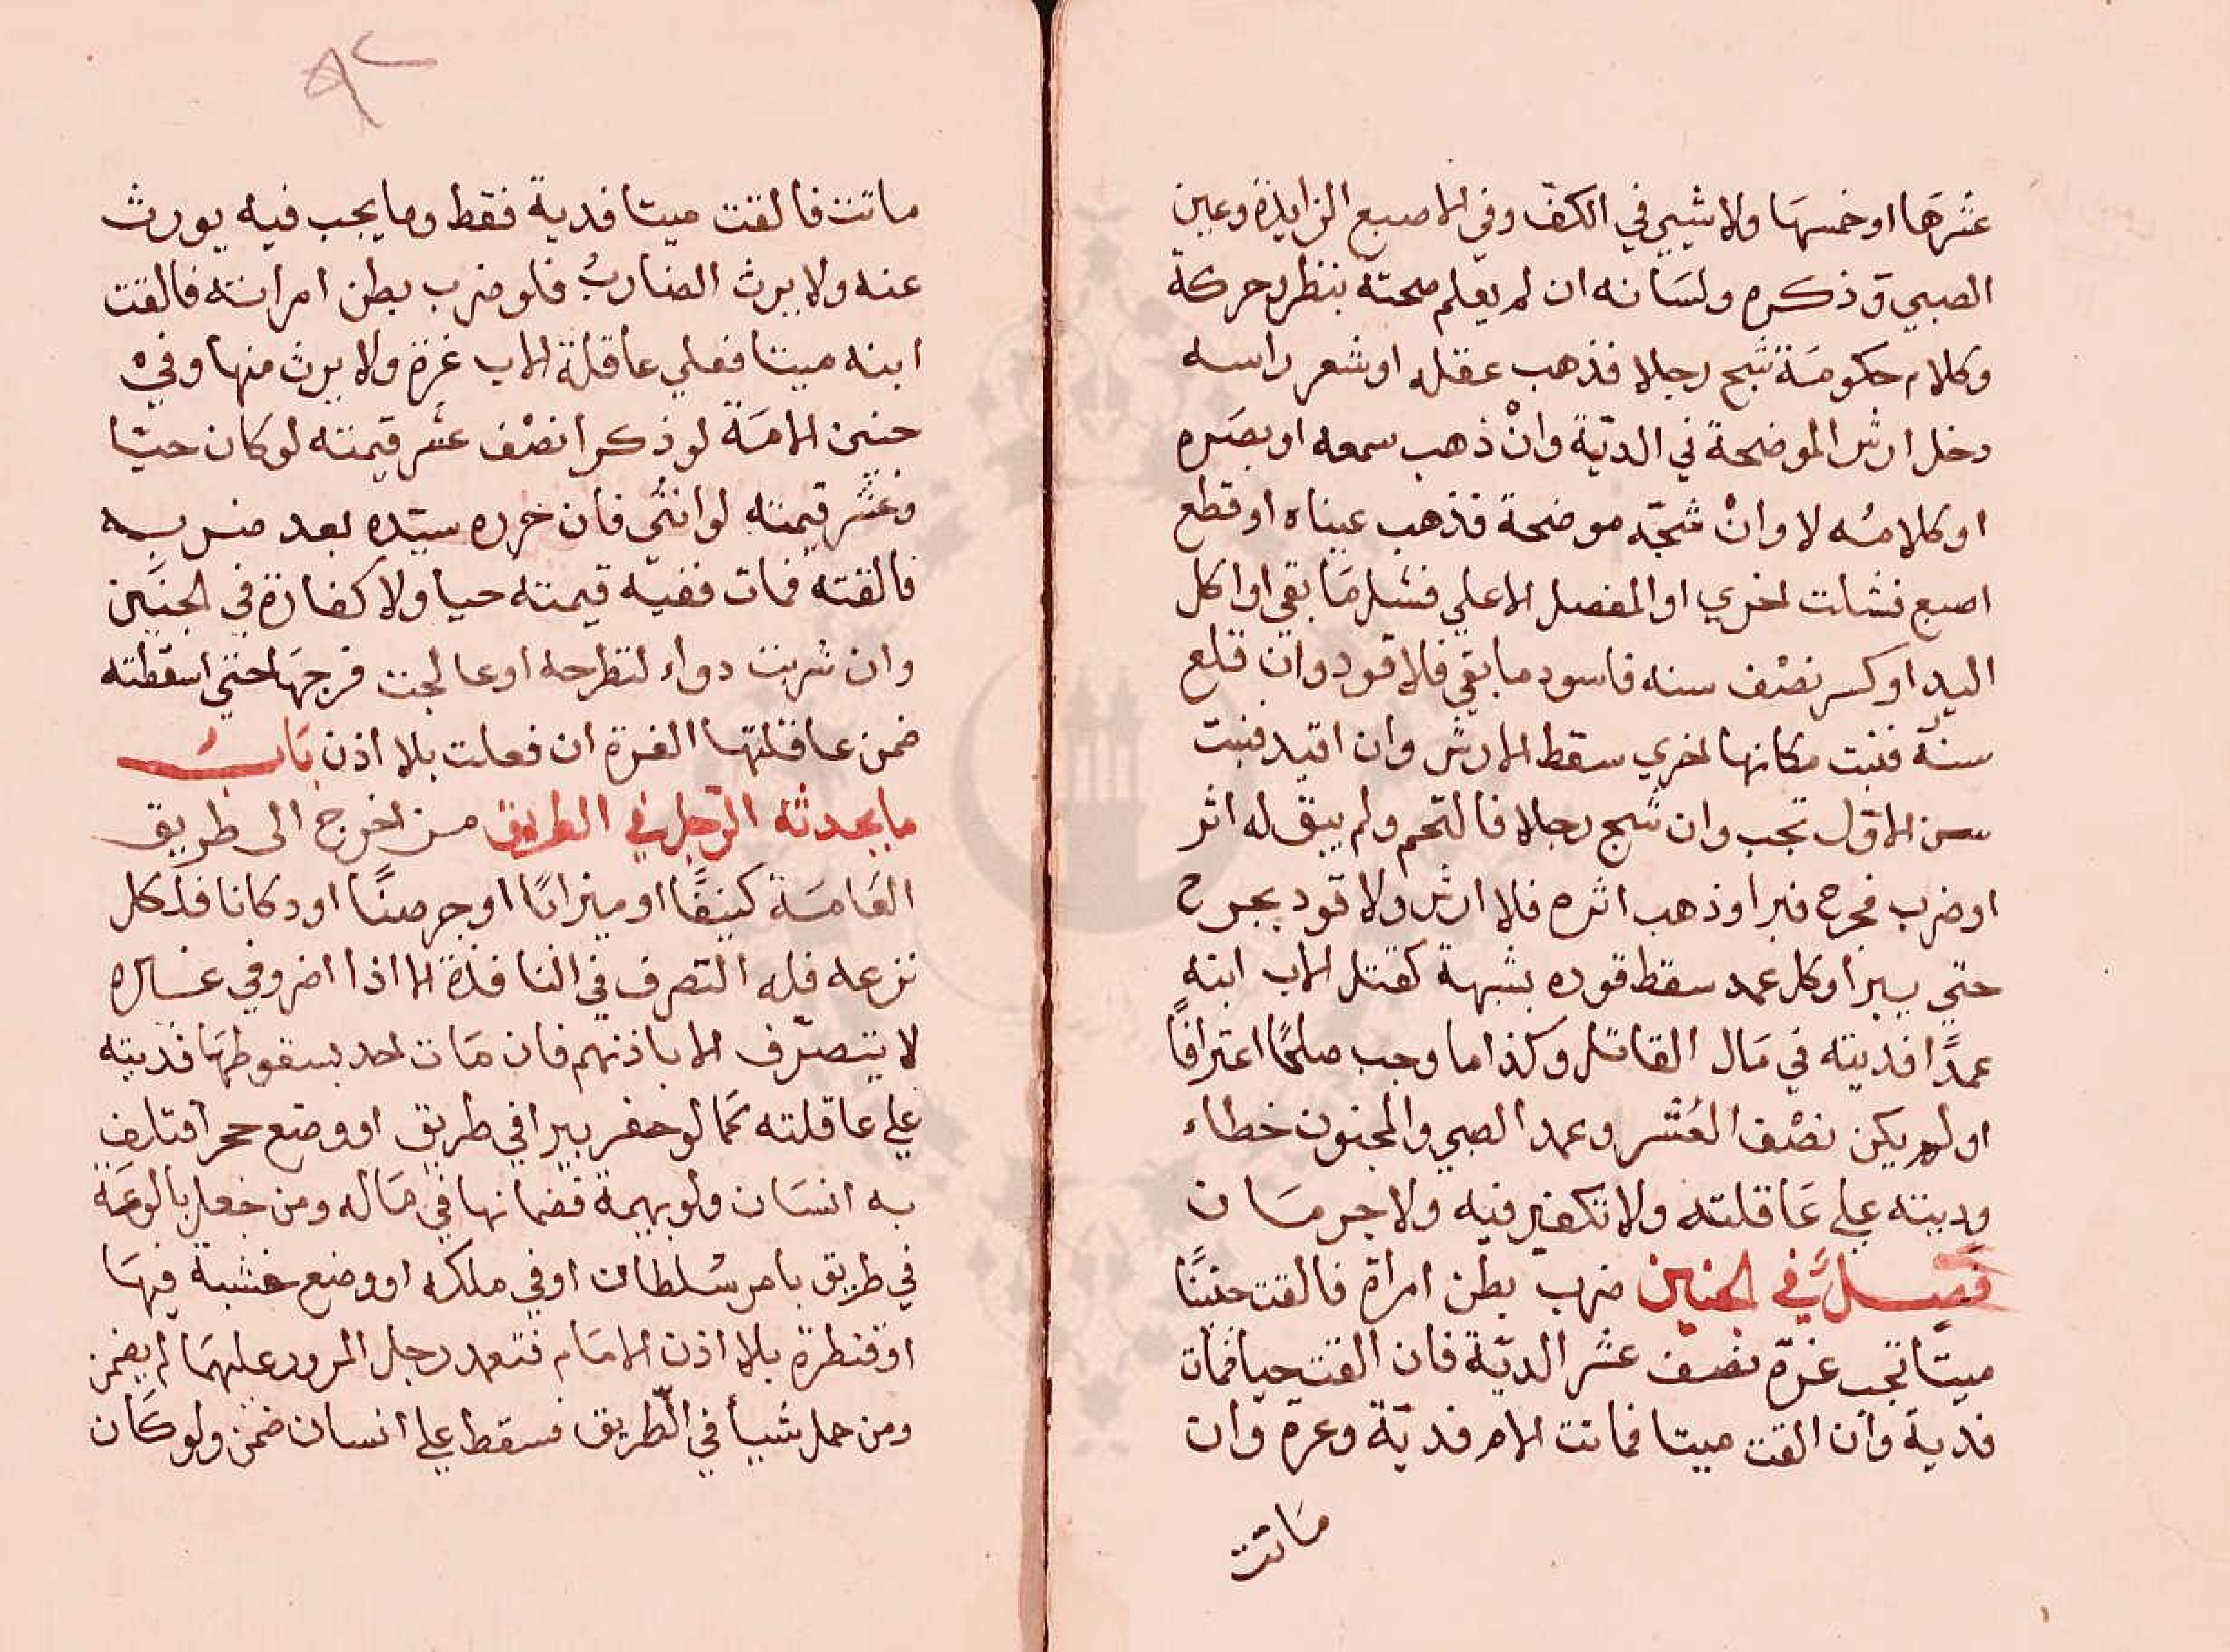 عشرها او خمسها ولا شيي في الكف وفي الاصبع الزايدة وعين
الصبي وذكره ولسانه ان لم يعلم صحته بنظر وحركة
وكلام حكومة شج رجلا فذهب عقله او شعر راسه
دخل ارش الموضحة في الدية وان ذهب سمعه او بصره
او كلامه لا وان شجه موضحة فذهب عيناه او قطع
اصبع فشلت اخري او المفصل الاعلي فشل ما بقي او اكل
اليد او كسر نصف سنه فاسود ما بقي فلا قود وان قلع
سنة فنبت مكانها اخري سقط الارش وان اقيد فنبت
سن الاول تجب وان شج رجلا فالتحم ولم يبق له اثر
او ضرب فجرح فبرا وذهب اثره فلا ارش ولا قود بجرح
حتي يبرا وكل عمد سقط قوده بشبهة كقتل الاب ابنه
عمدًا فديته في مال القاتل وكذا ما وجب صلحًا اعترافًا
او لم يكن نصف العشر وعمد الصبي والمجنون خطاء
وديته علي عاقلته ولا تكفير فيه ولا حرمان
فصل في الجنين ضرب بطن امراة فالقت جنينًا
ميتا تجب غرة نصف عشر الدية فان القت حيا فمات
فدية وان القت ميتا فماتت الام فدية وغرة وان
ماتت
٩٢
ماتت فالقت ميتا فدية فقط وما يجب فيه يورث
عنه ولا يرث الضارب فلو ضرب بطن امراته فالقت
ابنه ميتا فعلي عاقلة الاب غرة ولا يرث منها وفي
جنين الامة لو ذكرا نصف عشر قيمته لو كان حيا
وعشر قيمته لو انثي فان حرره سيده بعد ضربه
فالقته فمات ففيه قيمته حيا ولا كفارة في الجنين
وان شربت دواء لتطرحه او عالجت فرجها حتي اسقطته
ضمن عاقلتها الغرة ان فعلت بلا اذن باب
ما يحدثه الرجل في الطريق من اخرج الى طريق
العامة كنيفًا او ميزابًا او جرصنًا او دكانا فلكل
نزعه فله التصرف في النافذة الا اذا اضر وفي غيره
لا يتصرف الا باذنهم فان مات احد بسقوطها فديته
علي عاقلته كما لو حفر بيرا في طريق او وضع حجرا فتلف
به انسان ولو بهيمة فضمانها في ماله ومن جعل بالوعة
في طريق بامر سلطان او في ملكه او وضع خشبة فيها
او قنطرة بلا اذن الامام فتعمد رجل المرور عليهما لم يضمن
ومن حمل شيأ في الطريق فسقط علي انسان ضمن ولو كان